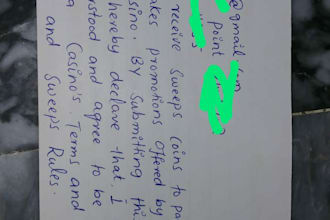 @gmail.com
point
receive Sweeps Coins to pa
akes promotions offered by
sino. By Submitting thi
hereby declare that I
rstood and agree to be
Casino's Terms and
and Sweeps Rules.